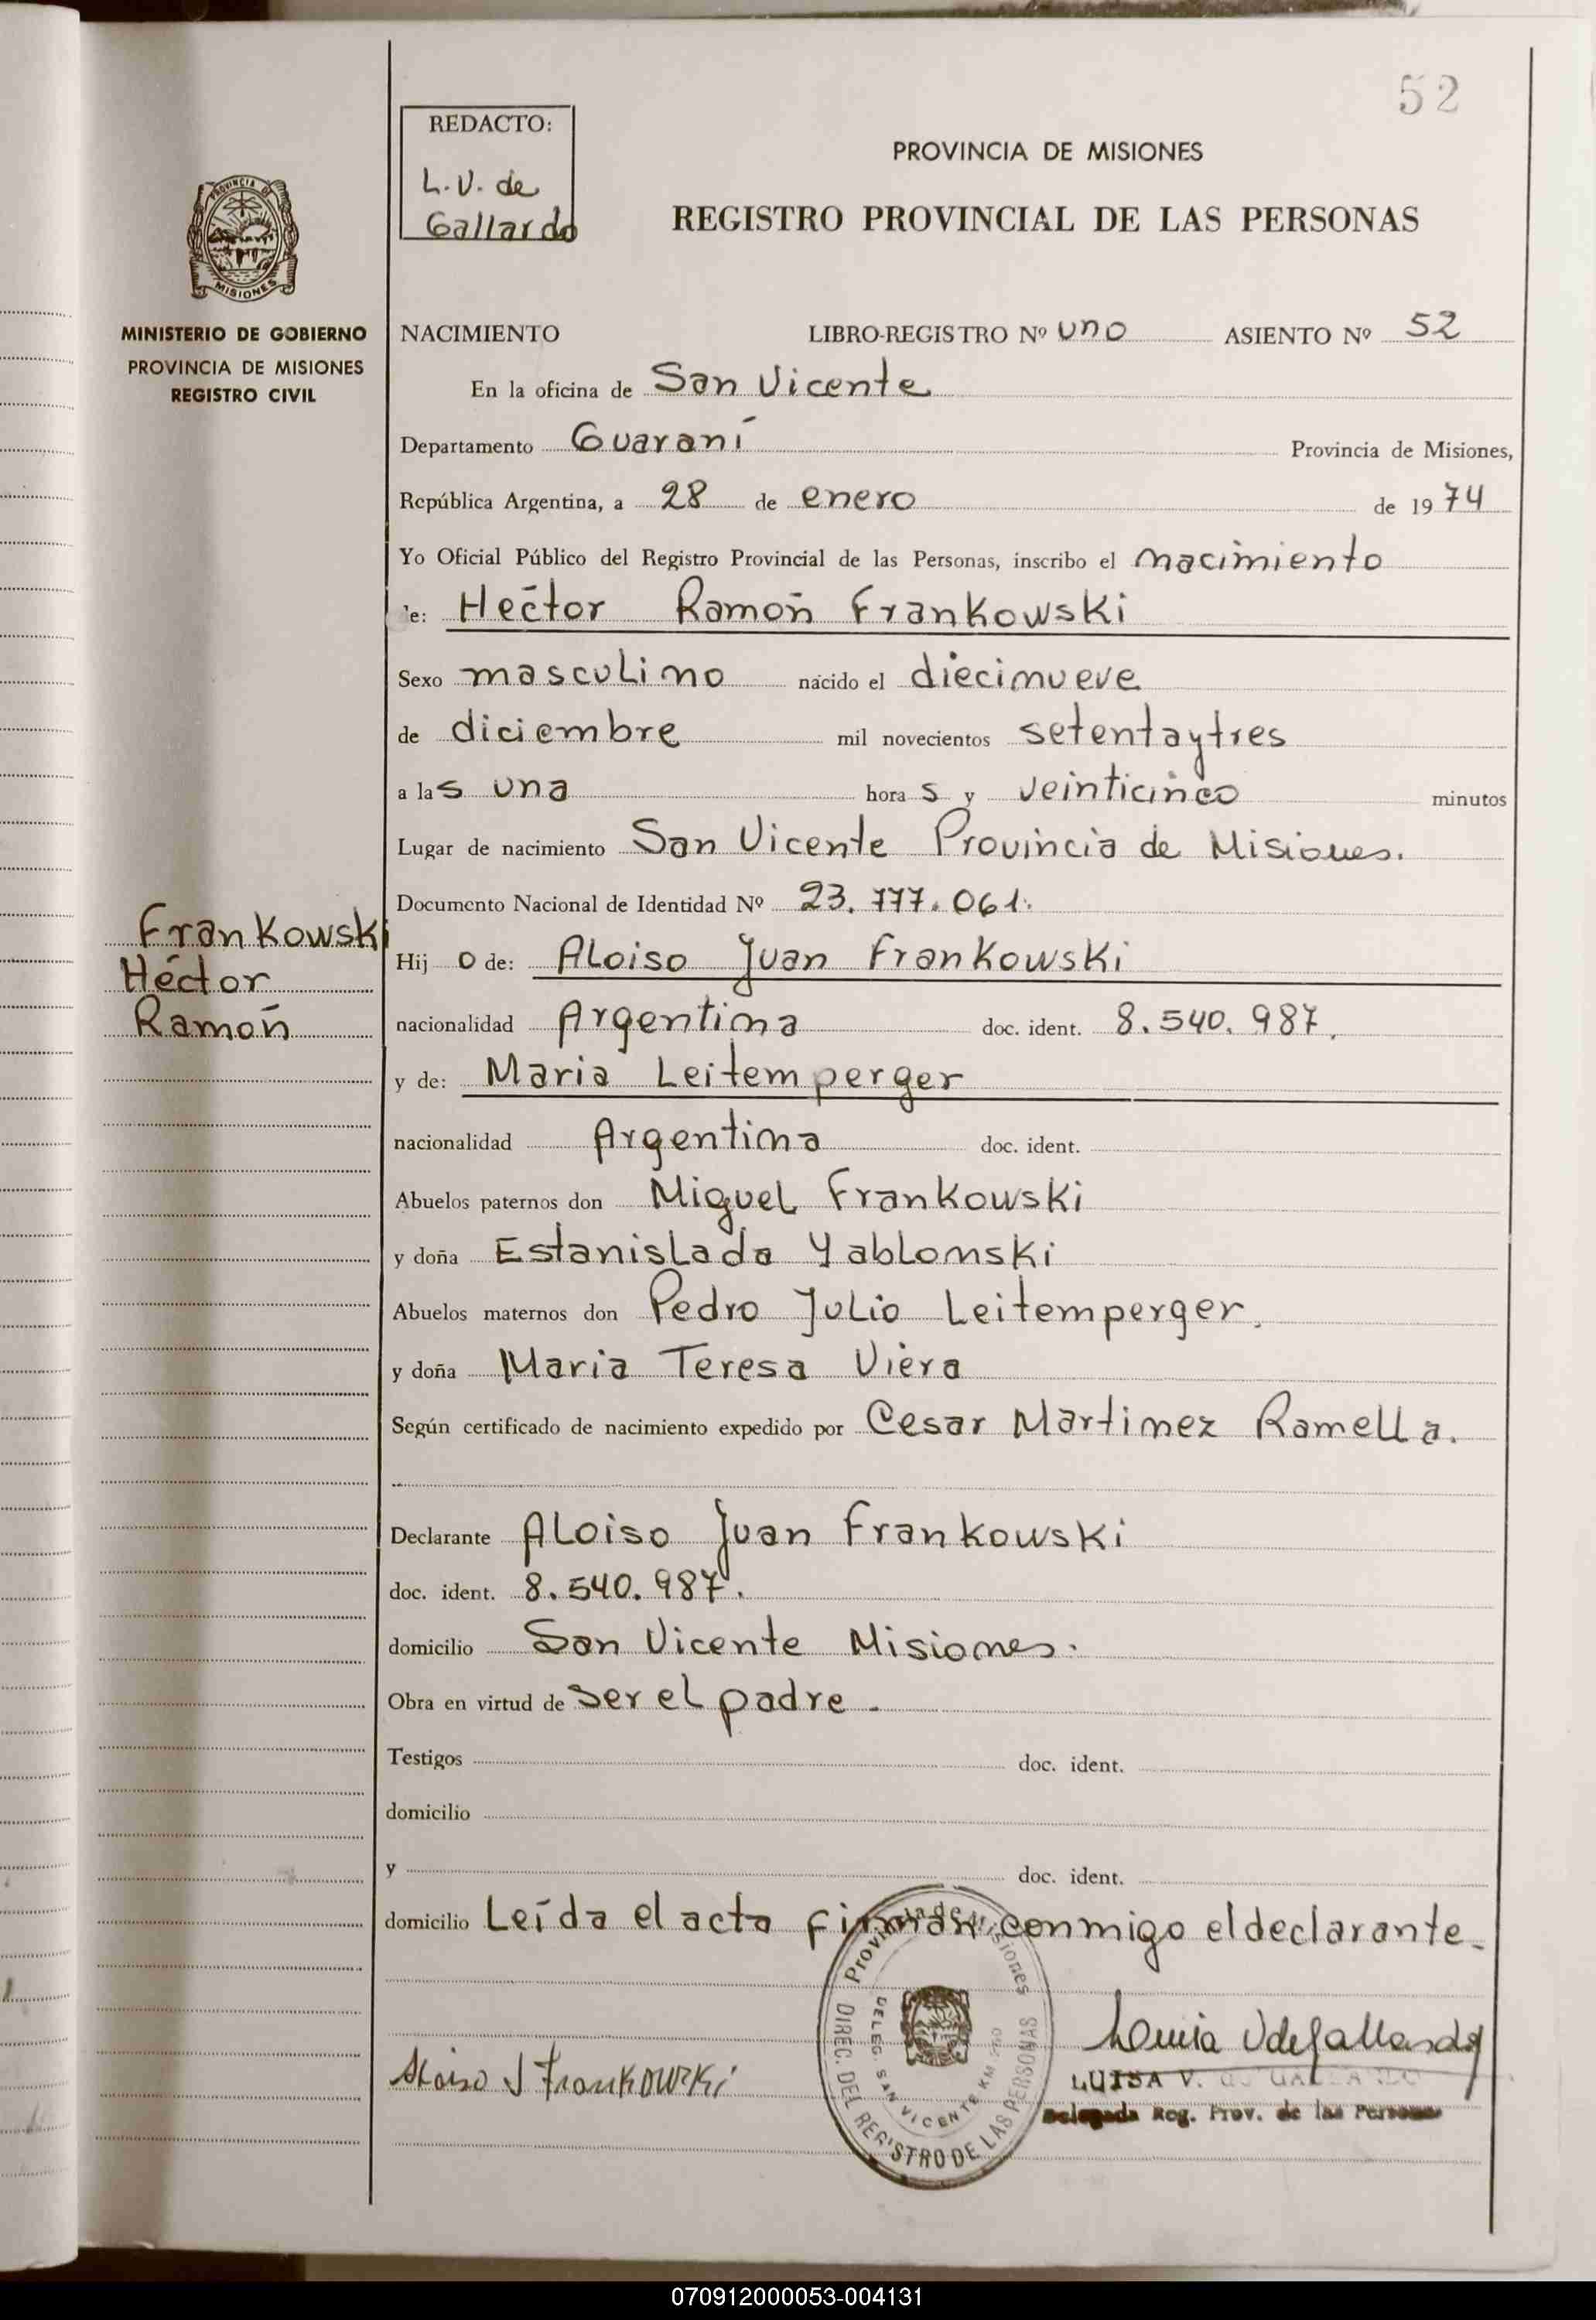 52
REDACTO:
L.V. de
Gallardo
PROVINCIA DE MISIONES
REGISTRO PROVINCIAL DE LAS PERSONAS
PROVINCIA DE
MISIONES
MINISTERIO DE GOBIERNO
PROVINCIA DE MISIONES
REGISTRO CIVIL
NACIMIENTO LIBRO-REGISTRO Nº uno ASIENTO Nº 52
En la oficina de San Vicente
Departamento Guaraní Provincia de Misiones,
República Argentina, a 28 de enero de 1974
Yo Oficial Público del Registro Provincial de las Personas, inscribo el nacimiento
de: Héctor Ramón Frankowski
Sexo masculino nacido el diecinueve
de diciembre mil novecientos setentaytres
a las una horas y veinticinco minutos
Lugar de nacimiento San Vicente Provincia de Misiones.
Documento Nacional de Identidad Nº 23.777.061.
Frankowski
Héctor
Ramón
Hijo de: Aloiso Juan Frankowski
nacionalidad Argentina doc. ident. 8.540.987.
y de: Maria Leitemperger
nacionalidad Argentina doc. ident.
Abuelos paternos don Miguel Frankowski
y doña Estanislada Yablonski
Abuelos maternos don Pedro Julio Leitemperger.
y doña Maria Teresa Viera
Según certificado de nacimiento expedido por Cesar Martinez Ramella.
Declarante Aloiso Juan Frankowski
doc. ident. 8.540.987.
domicilio San Vicente Misiones.
Obra en virtud de ser el padre.
Testigos doc. ident.
domicilio
y doc. ident.
domicilio Leída el acta firman conmigo el declarante.
Provincia de Misiones
DIREC. DEL REGISTRO DE LAS PERSONAS
DELEG. SAN VICENTE KM
Aloiso J Frankowski
Luisa V de Gallardo
LUISA V. de GALLARDO
Delegada Reg. Prov. de las Personas
070912000053-004131